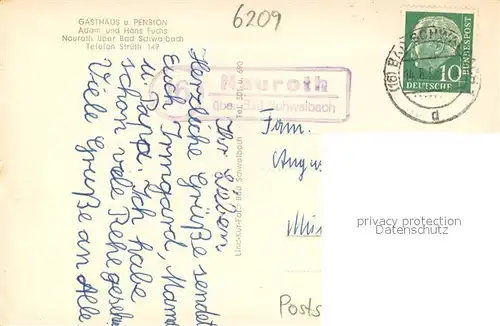 GASTHAUS u. PENSION
Adam und Hans Fuchs
Nauroth über Bad Schwalbach
Telefon Strüth 149
6209
Nauroth
über Bad Schwalbach
(16) BAD SCHWAL
d
10
DEUTSCHE
BUNDESPOST
Ihr Lieben,
Herzliche Grüße sendet
Euch Irmgard, Mama
u. Papa. Ich habe
schon viele Rehe gesehen
Viele Grüße an Alle.
Fam.
Posts
privacy protection
Datenschutz